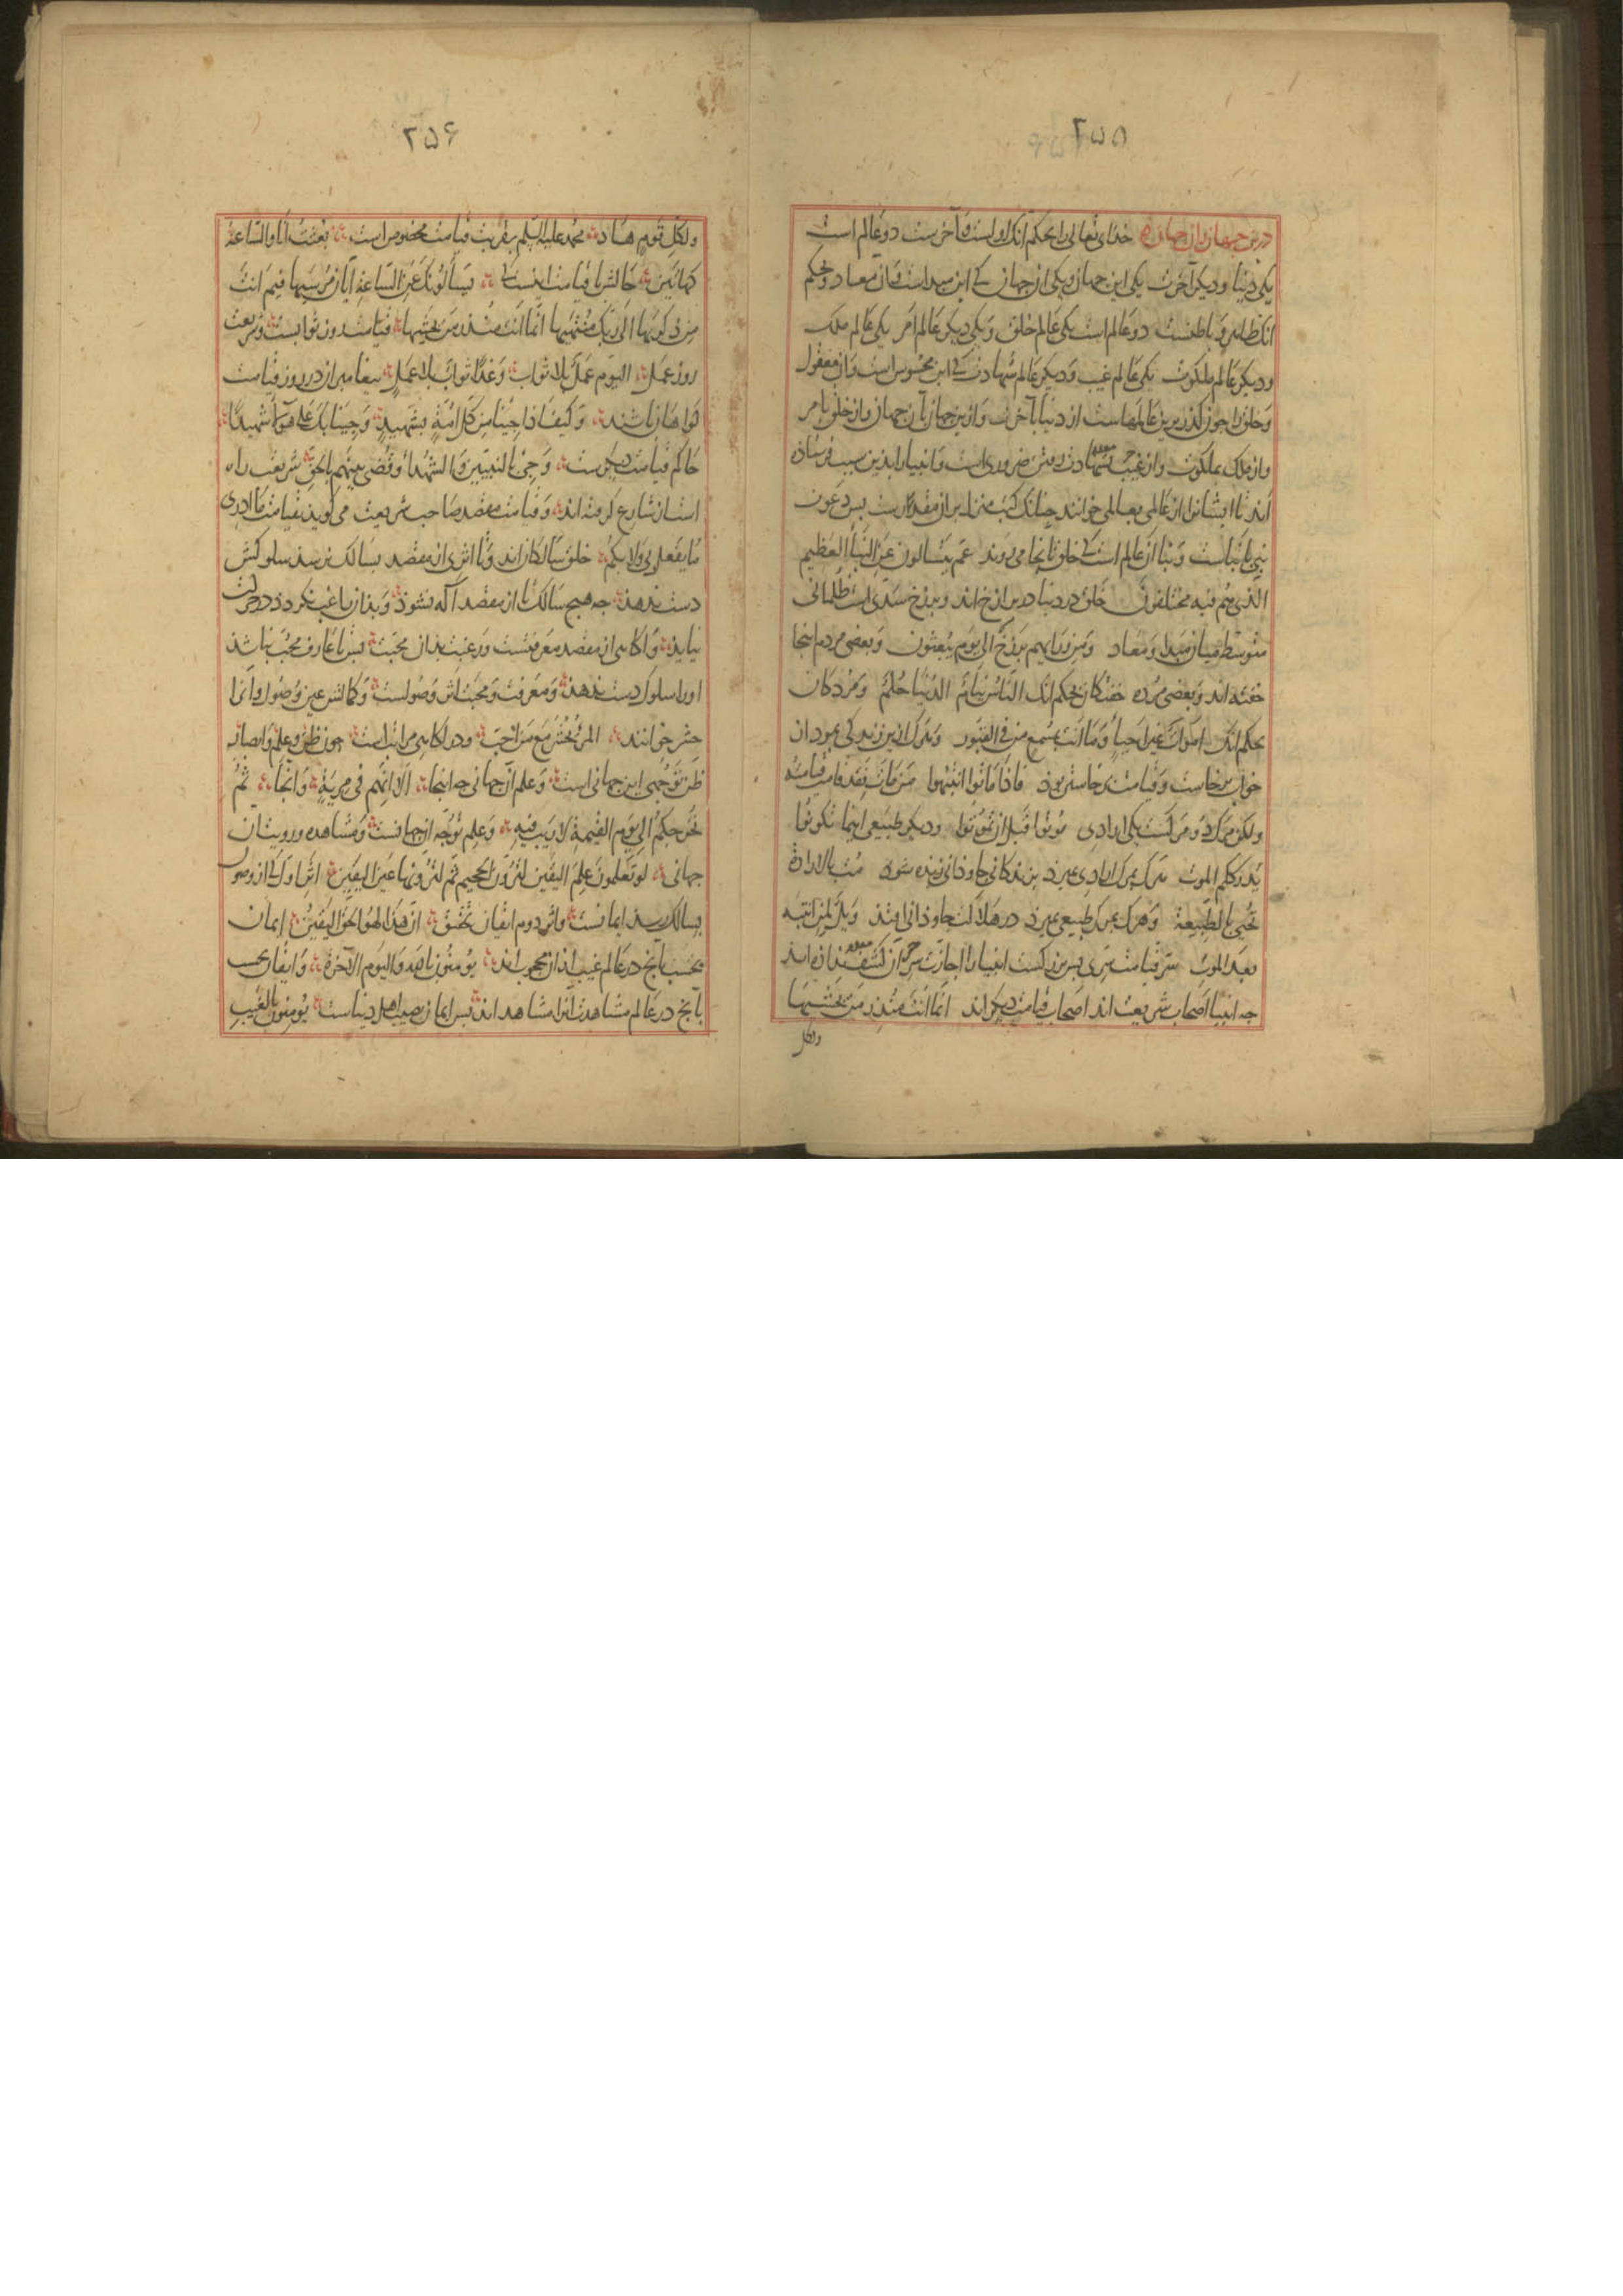 ٢٥٥
درین جهان و آن جهان خدای تعالی را بحکم آنک اولست و آخرست دو عالم است
یکی دنیا و دیکر آخرت یکی این جهان و یکی آن جهان کی این مبدا است و آن معاد و بحکم
آنک ظاهر و باطنست دو عالم است یکی عالم خلق و یکی دیکر عالم امر یکی عالم ملک
و دیکر عالم ملکوت یکی عالم غیب و دیکر عالم شهادت کی این محسوس است و آن معقول
و خلق را جون کذر برین عالمهاست از دنیا بآخرت و ازین جهان بآن جهان و از خلق بامر
و از ملک بملکوت و از غیب بشهادت رفتن ضروری است و انبیا را بدین سبب فرستاده
اند تا ایشانرا از عالمی بعالمی خوانند جنانک کتب منزله بر آن مقدارست بس دعوت
نبی بانباست و نبا از عالم است کی خلق بانجا می روند عم یتسالون عن النبأ العظیم
الذی هم فیه مختلفون خلق در دنیا در برازخ اند و برزخ سدی است ظلمانی
متوسط میان مبدا و معاد و من ورایهم برزخ الی یوم یبعثون و بعضی مردم اینجا
خفته اند و بعضی مرده خفتکان بحکم آنک الناس نیام الدنیا حلم و مردکان
بحکم آنک اموات غیر احیاء و ما انت بمسمع من فی القبور و مرک ازین زندکی بمرد از آن
خواب برخاست و قیامت برخاستن بود فاذا ماتوا انتبهوا من مات فقد قامت قیامته
ولکن مرک دو مرکست یکی ارادی موتوا قبل ان تموتوا و دیکر طبیعی اینما تکونوا
یدرککم الموت هرک بمرک ارادی بمیرد بزندکانی جاودانی زنده شود مت بالارادة
تحیی بالطبیعة و هرک بمرک طبیعی بمیرد در هلاکت جاودانی افتد ویل لمن انتبه
بعد الموت سر قیامت سری بس بزرکست انبیا را اجازت شرح آن کشف نداده اند
جه انبیا اصحاب شریعت اند اصحاب قیامت دیکر اند انما انت منذر من یخشیها
ولکل
٢٥۶
ولکل قوم هاد محمد علیه السلم بقربت قیامت مخصوص است بعثت انا والساعة
کهاتین حالش با قیامت اینست کی یسألونک عن الساعة ایان مرسیها فیم انت
من ذکریها الی ربک منتهیها انما انت منذر من یخشیها قیامت روز ثوابست و شریعت
روز عمل الیوم عمل بلا ثواب وغدا ثواب بلا عمل بیغامبران در روز قیامت
کواهان باشند وکیف اذا جینا من کل امة بشهید وجینا بک علی هؤلاء شهیدا
حاکم قیامت دیکرست وجیء بالنبیین والشهداء وقضی بینهم بالحق شریعت راه
است از شارع کرفته اند و قیامت مقصد صاحب شریعت می کوید بقیامت ما ادری
ما یفعل بی ولا بکم خلق سالکان اند و تا اثری از مقصد بسالک نرسد سلوکش
دست ندهد جه هیج سالک تا از مقصد آکه نشود و بدان راغب نکردد در حرکت
نیاید و آکاهی از مقصد معرفتست و رغبت بدان محبت بس تا عارف محب نباشد
او را سلوک دست ندهد و معرفت و محبت اثر وصولست و کمالش عین وصول و آنرا
حشر خوانند المرء یحشر مع من احب و در آکاهی مراتب است جون ظن و علم و ابصار
ظن بتوجهی این جهانی است و علم آن جهانی جه اینجا الا انهم فی مریة و آنجا ثم
نحن جکم الی یوم القیمة لا ریب فیه و علم بتوجه آن جهانست و مشاهده و رویت آن
جهانی لو تعلمون علم الیقین لترون الجحیم ثم لترونها عین الیقین اثر اول کی از وصول
بسالک رسد ایمانست و اثر دوم ایقان بتحقق ان هذا لهو الحق الیقین ایمان
بحسب آنج در عالم غیب اند از آن محجوب اند یومنون بالله والیوم الآخر و ایقان بحسب
بآنج در عالم شهادت آنرا مشاهد اند بس ایمان نصیب اهل دنیاست یومنون بالغیب